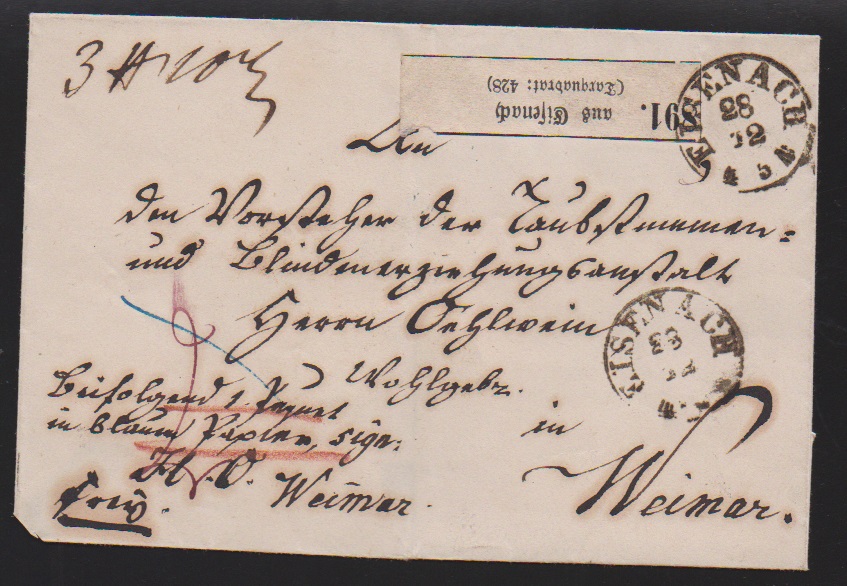 3 ℔ 10
91.
aus Eisenach
(Taxquadrat: 428)
EISENACH
28
12
4 5
An
den Vorsteher der Taubstummen-
und Blindenerziehungsanstalt
Herrn Oehlwein
EISENACH
28
12
4
Wohlgebr.
Beifolgend 1 Paquet
in blauem Papier, sign:
in
H. O. Weimar.
Weimar.
frei.